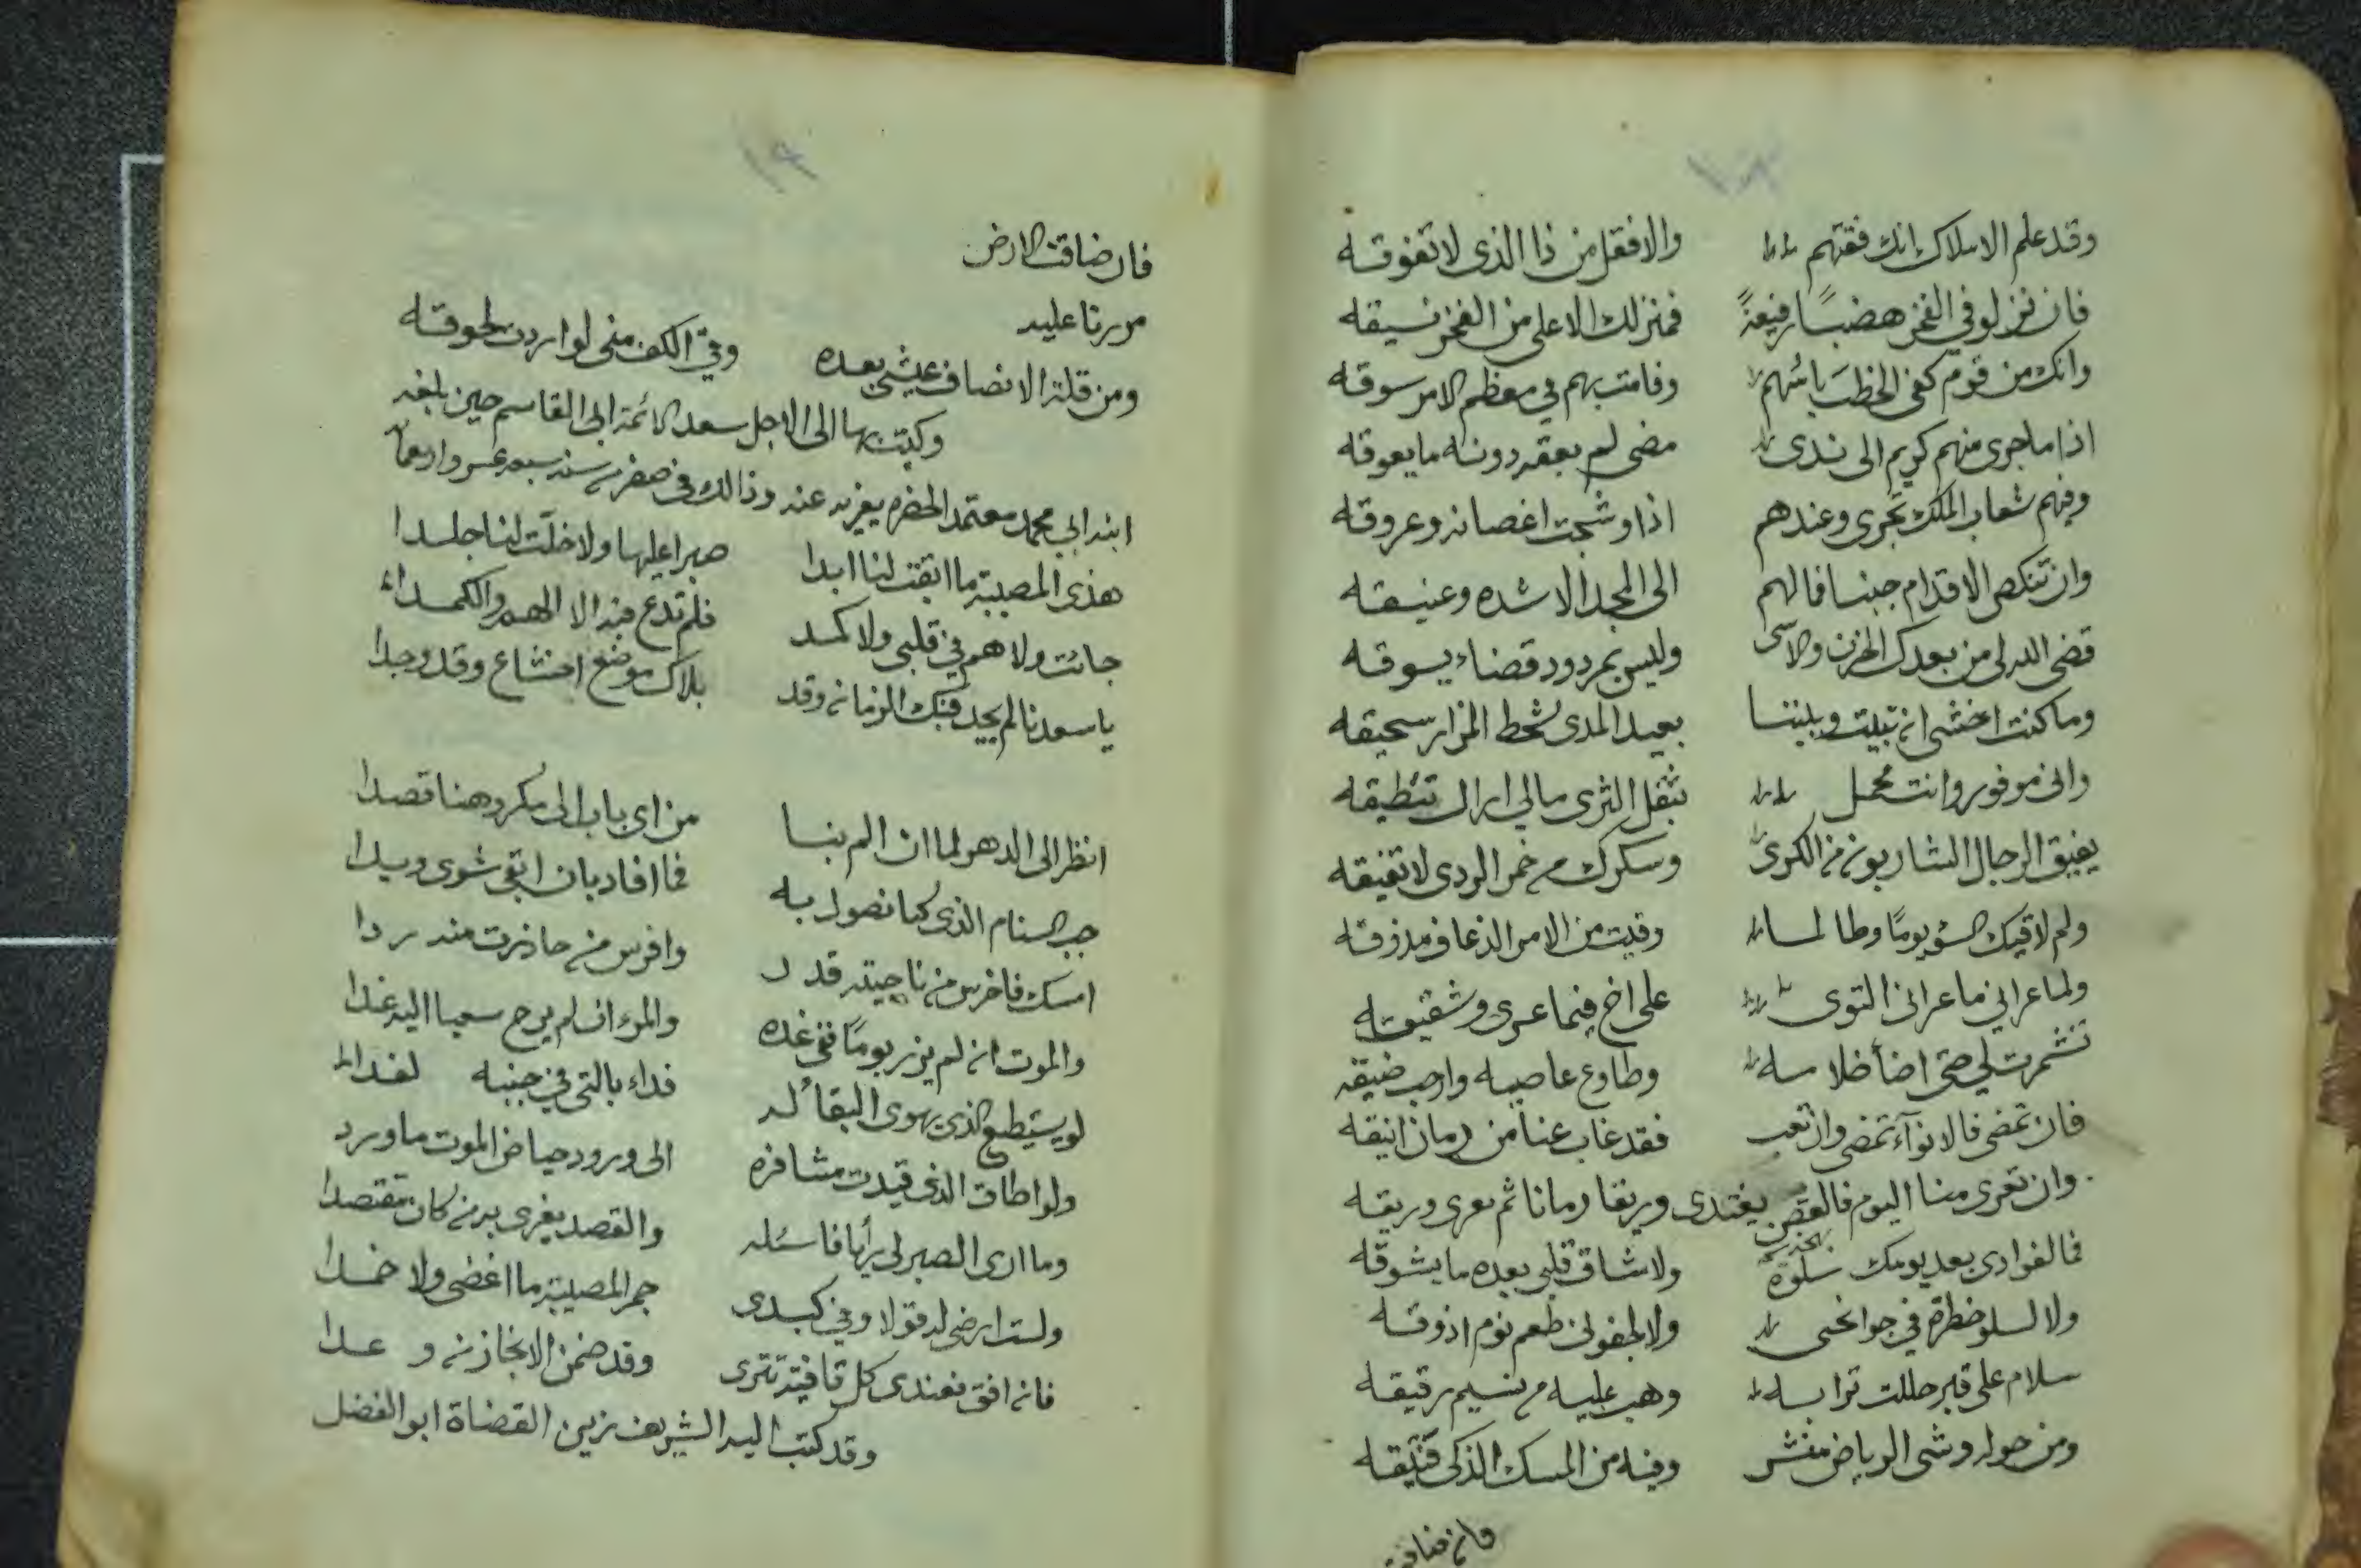 وقد علم الاملاك انك فقتهم والا فقل من ذا الذى لا تفوقه
فان نزلوا في الفخر هضبًا رفيعةً فمنزلك الاعلى من الفخر نيقه
وانك من قوم كفى الخطبَ بائسهم وقامت بهم في معظم الامر سوقه
اذا ما جرى منهم كريم الى ندى مضى لم يعقه دونه ما يعوقه
وفيهم شعاب الملك تجرى وعندهم اذا وشجت اغصانه وعروقه
وان تنكص الاقدام جبنا فما لهم الى المجد الا شده وعنيقه
قضى الله لى من بعدك الحزن والاسى وليس بمردود قضاء يسوقه
وما كنت اخشى ان تبيت وبيننا بعيد المدى شحط المزار سحيقه
وانى موفور وانت محمل بثقل الثرى مالي اراك تئطيقه
يفيق الرجال الشاربون من الكرى وسكرك من خمر الردى لا تفيقه
ولم لاقيك السؤ يومًا وطالما وقيت من الامر الذعاف مذوقه
ولما عراني ما عراني التوى على اخ فيما عرى وشقيقه
تشمرت لي حتى اضأ ظلامه وطاوع عاصيه وارحب ضيقه
فان تمضى فالانوآء تمضى وان تغب فقد غاب عنا من زمان انيقه
وان تعرى منا اليوم فالغصن يغتدى وريقا زمانا ثم يعرى وريقه
فما لفوادى بعد يومك سلوة ولا شاق قلبي بعده ما يشوقه
ولا لسلو خطرة في جوانحى ولا لجفونى طعم نوم اذوقه
سلام على قبر حللت ترابه وهب عليه من نسيم رقيقه
ومن حوله وشى الرياض منشر وفيه من المسك الذكى فتيقه
فان ضاقت
فان ضاقت الارض
مررنا عليه
ومن قلة الانصاف عيشى بعده وفي الكف منى لو اردت لحوقه
وكتب بها الى الاجل سعد الائمة ابى القاسم حين بلغه
ابنه ابي محمد معتمد الحضره يعزيه عنه وذالك في صفر من سنه سبعه عشر واربعمائه
هذى المصيبة ما ابقت لنا ابدا صبرا عليها ولا خلّت لنا جلدا
جائت ولا هم في قلبى ولا كمد فلم تدع فيه الا الهم والكمداء
يا سعدنا لم يجد فيك الزمان وقد بلاك موضع افشاع وقد وجدا
انظر الى الدهر لما ان الم بنا من اى باب الى مكروهنا قصدا
جب السنام الذى كنا نصول به فما افاد بان ابقى شوى ويدا
امسك فاخرس من ناجيته قد وافرس من حاذرت منه ردا
والموت ان لم يزر يومًا ففى غده والمرء ان لم يرح سعيا اليه غدا
لو يستطيع الذى يهوى البقأ له فداء بالتى في جنبه لفدا
ولو اطاق الذى قيدت مشافره الى ورود حياض الموت ما ورد
وما ارى الصبر لى يرأيا فاسئله والقصد يغرى به من كان مقتصدا
ولست ارضى له قولا وفي كبدى جمر المصيبة ما اغضى ولا خمدا
فان افق فعندى كل قافية تترى وقد ضمن الانجاز من وعدا
وقد كتب اليه الشريف زين القضاة ابو الفضل